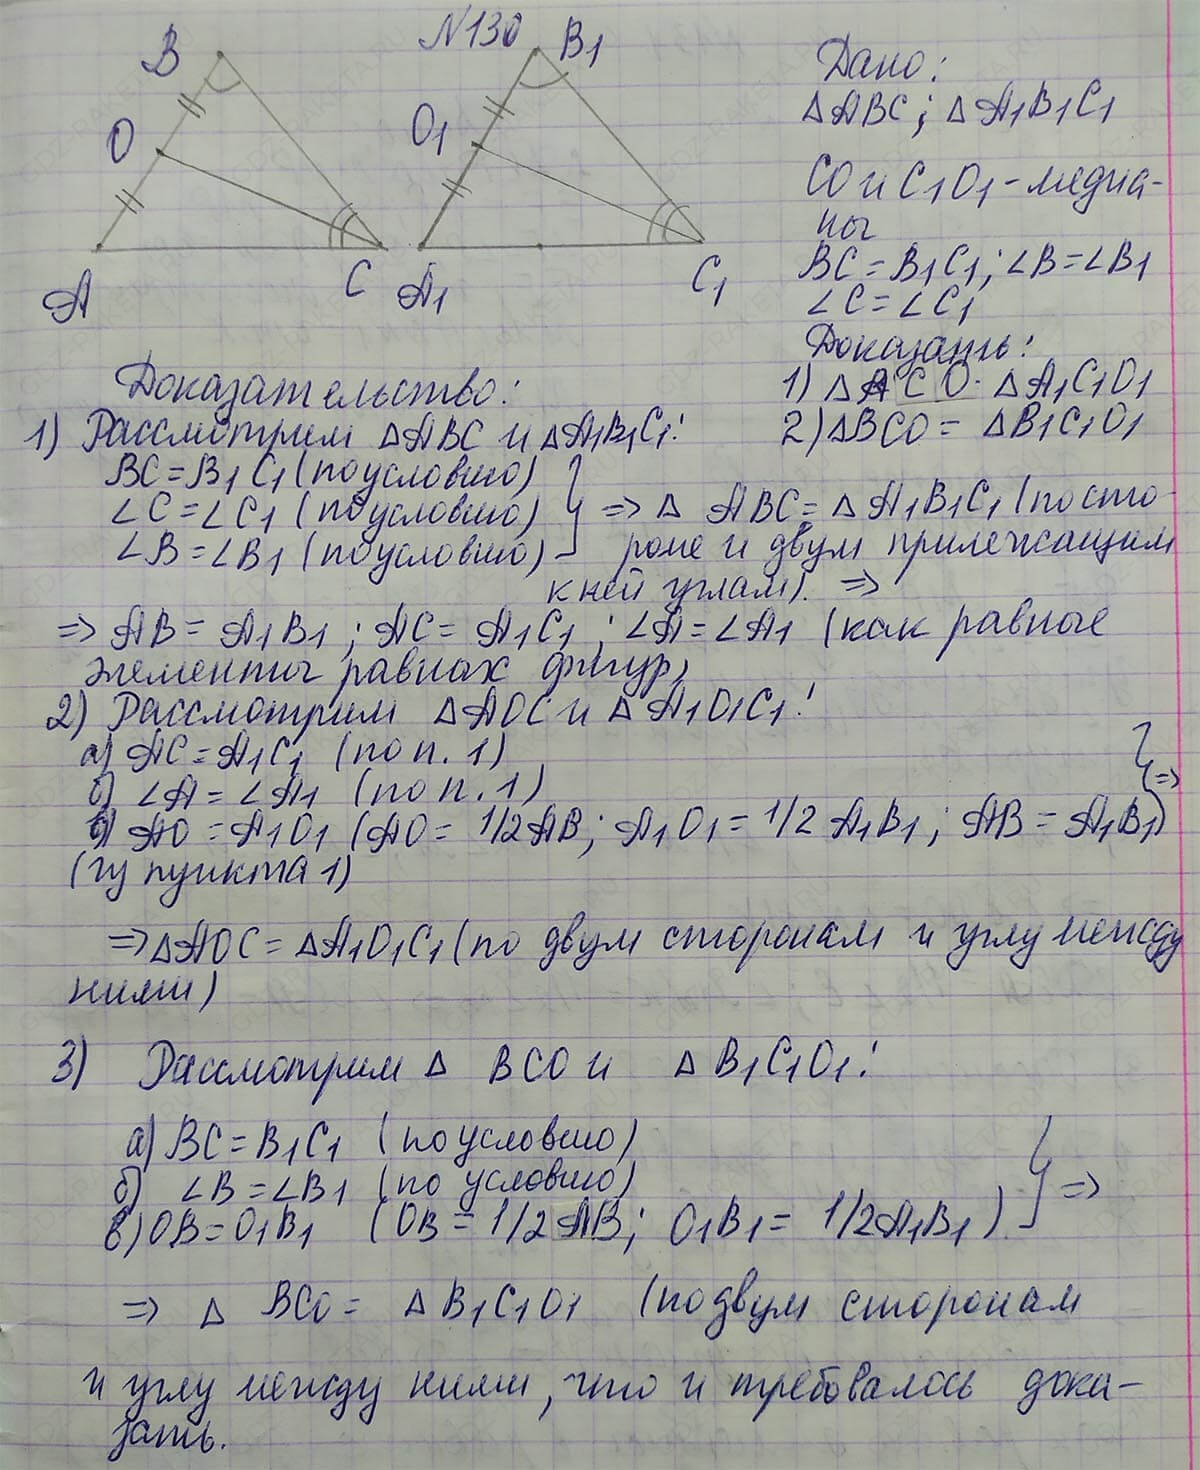 N130
B
B1
O
O1
A
C
A1
C1
Дано:
△ABC; △A1B1C1
CO и C1O1 - медиа-
ны
BC = B1C1; ∠B = ∠B1
∠C = ∠C1
Доказать:
1) △ACO = △A1C1O1
2) △BCO = △B1C1O1
Доказательство:
1) Рассмотрим △ABC и △A1B1C1:
BC = B1C1 (по условию)
∠C = ∠C1 (по условию)
∠B = ∠B1 (по условию)
=> △ ABC = △A1B1C1 (по сто
роне и двум прилежащим
к ней углам). =>
=> AB = A1B1; AC = A1C1; ∠A = ∠A1 (как равные
элементы равных фигур)
2) Рассмотрим △AOC и △A1O1C1:
а) AC = A1C1 (по п. 1)
б) ∠A = ∠A1 (по п. 1)
в) AO = A1O1 (AO = 1/2 AB; A1O1 = 1/2 A1B1; AB = A1B1) =>
(из пункта 1)
=> △AOC = △A1O1C1 (по двум сторонам и углу между
ними)
3) Рассмотрим △ BCO и △ B1C1O1:
а) BC = B1C1 (по условию)
б) ∠B = ∠B1 (по условию)
в) OB = O1B1 (OB = 1/2 AB; O1B1 = 1/2 A1B1) =>
=> △ BCO = △ B1C1O1 (по двум сторонам
и углу между ними, что и требовалось дока-
зать.